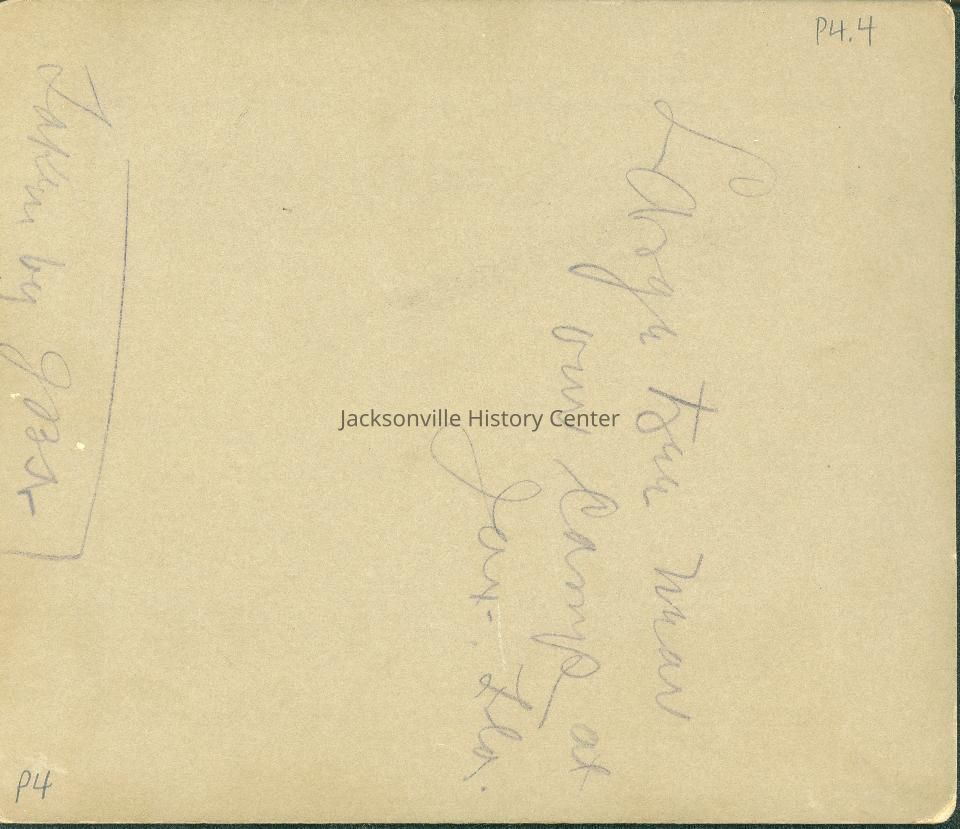 P4.4
Large tree near
our Camp at
Jax. Fla.
Taken by
P4
Jacksonville History Center